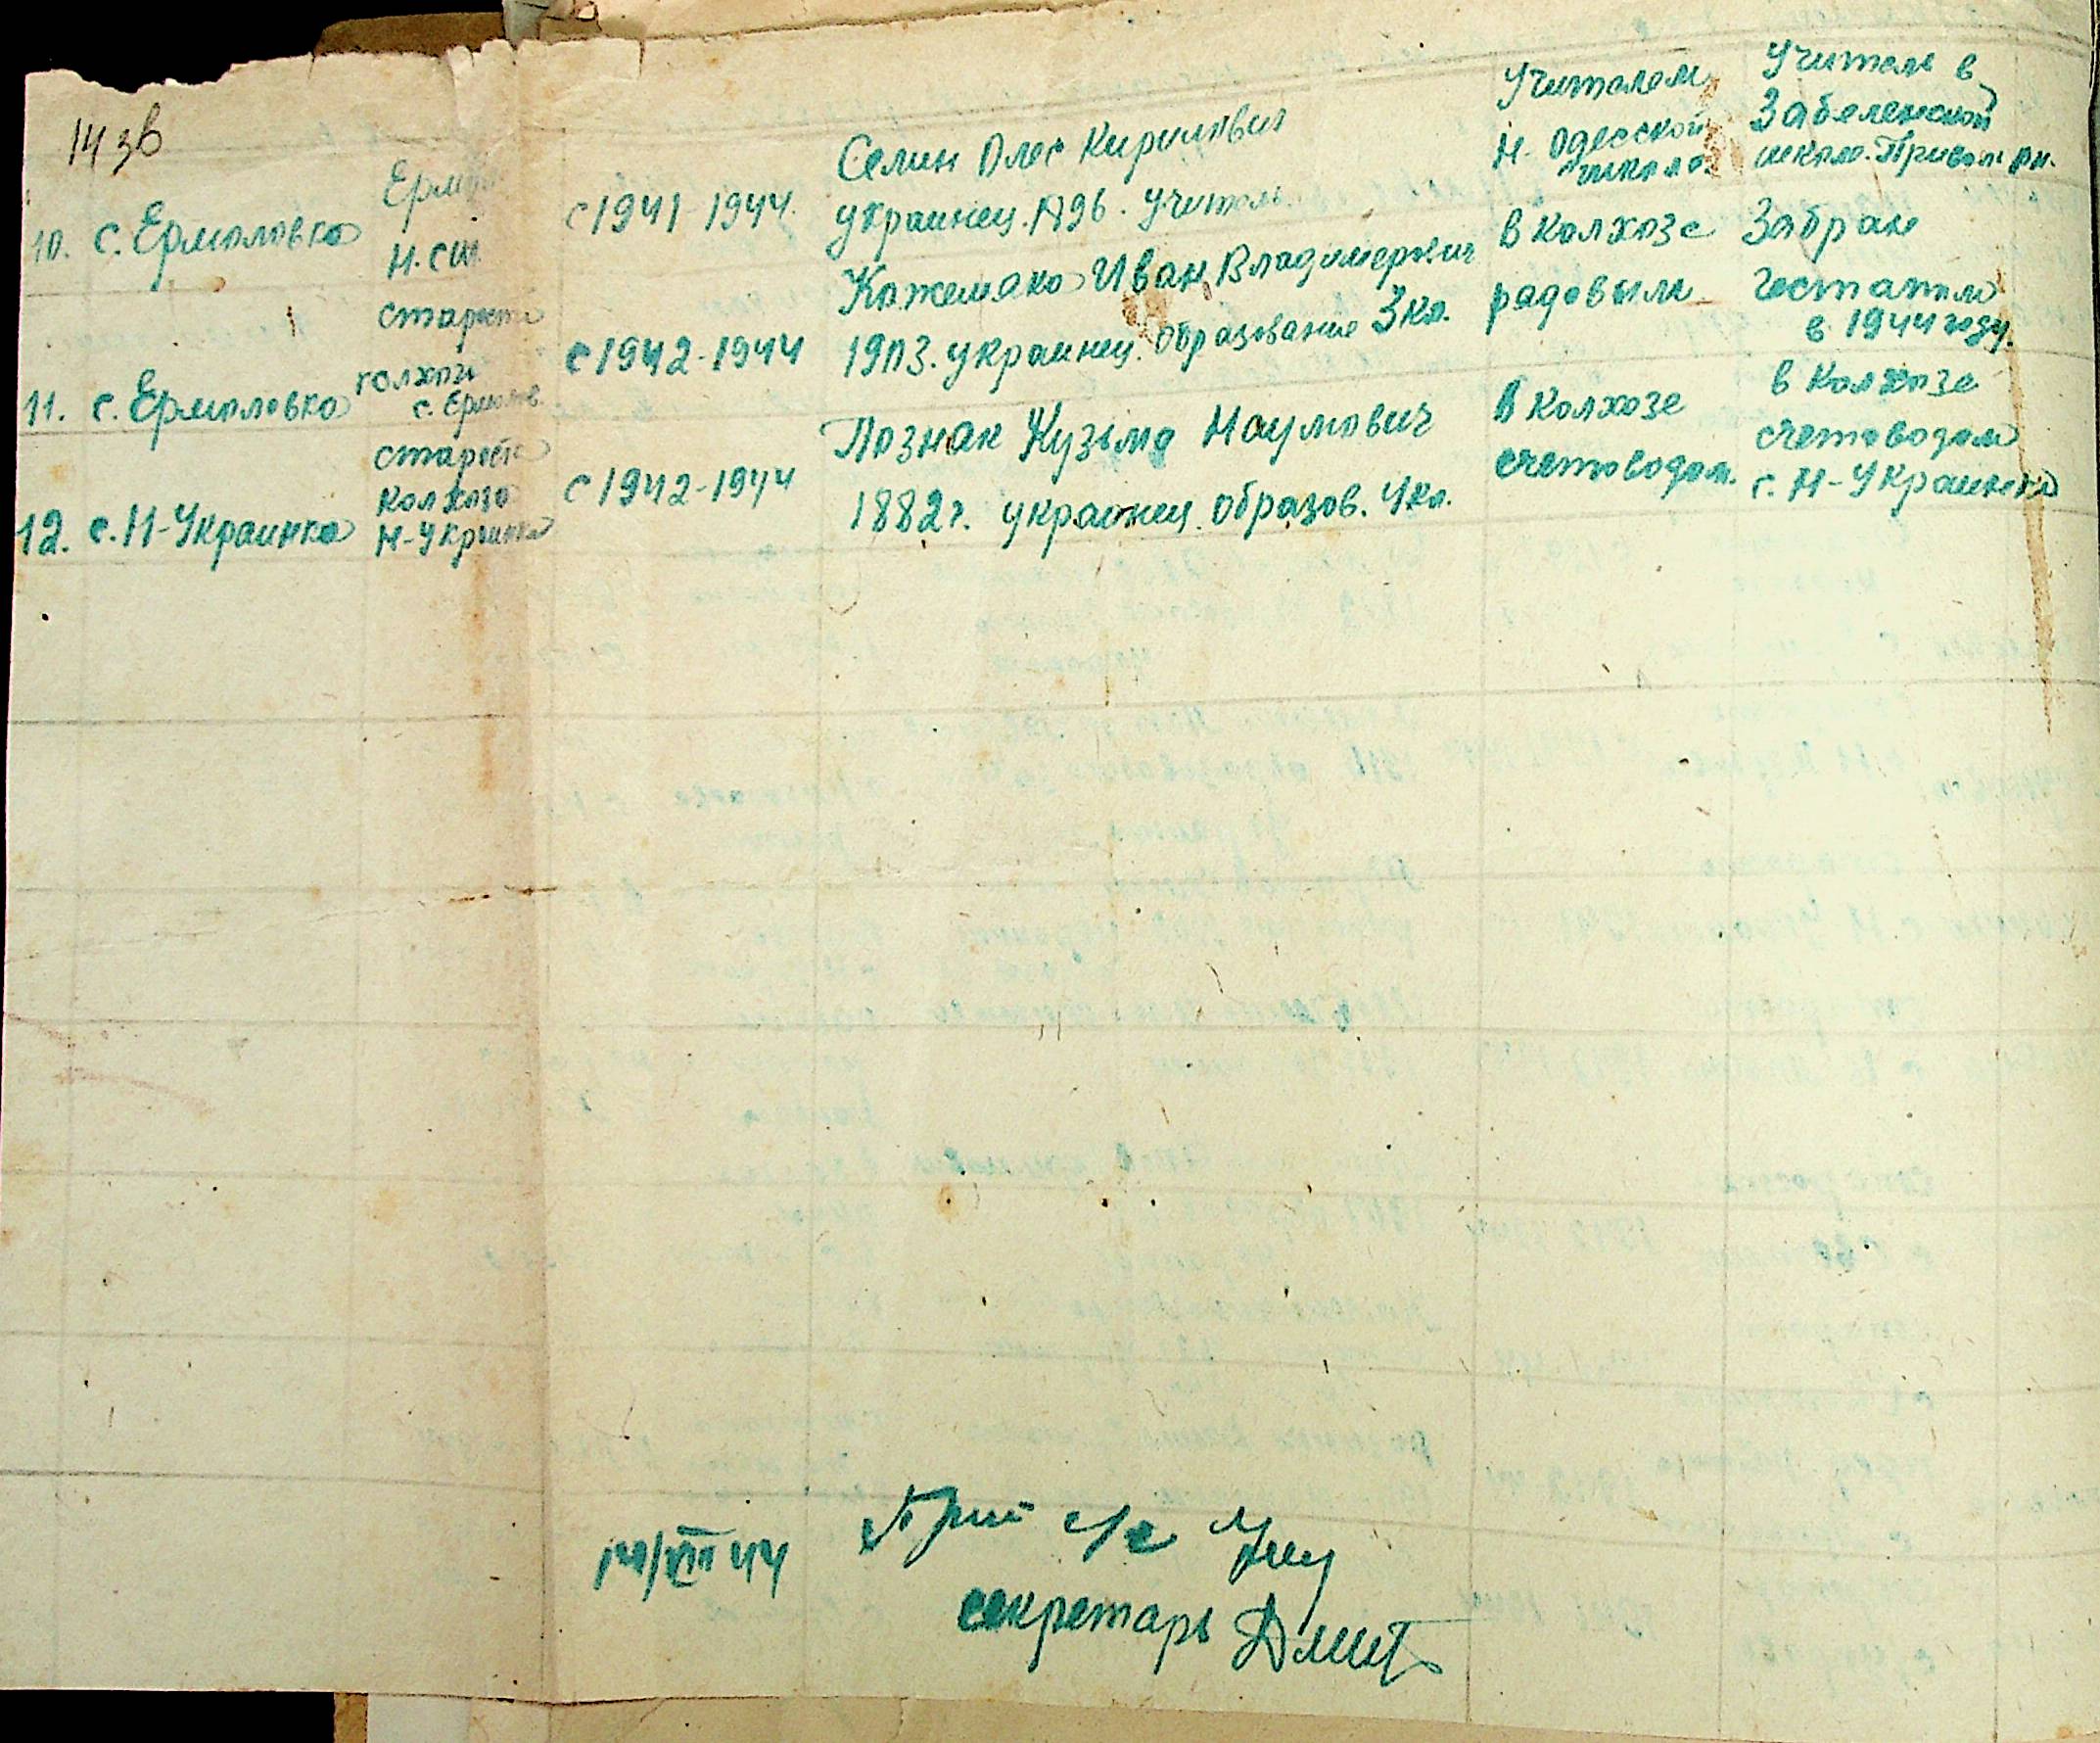 14 зв
10. с. Ермоловка
Н. СШ.
с 1941-1944.
Селин Олес Кирилович
украинец. 1896. Учитель
Учителем
Н. Одесской
школе.
Учитель в
Забеленской
школе. Привол рн.
11. с. Ермоловка
староста
колхоза
с. Ермолов.
с 1942-1944
Кожемяко Иван Владимерович
1903. украинец. образование 3 кл.
в колхозе
радовым
Забран
гестапом
в 1944 году.
12. с. Н-Украинка
староста
колхоза
Н-Украинка
с 1942-1944
Познак Кузьма Наумович
1882 г. украинец. образов. 4 кл.
в колхозе
счетоводом.
в колхозе
счетоводом
с. Н-Украинка
секретарь